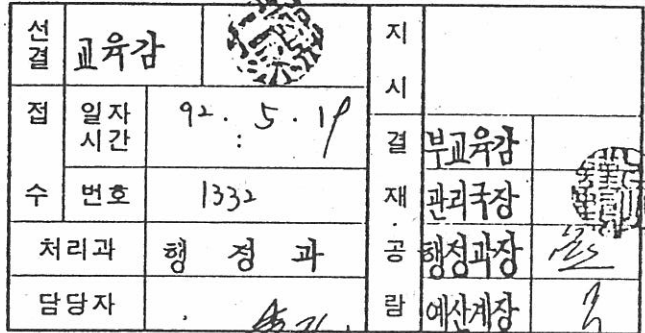 선결 교육감 지시
접수 일자 시간 92. 5. 19 :
결재·공람 부교육감
번호 1332 관리국장
처리과 행정과 행정과장
담당자 예산계장